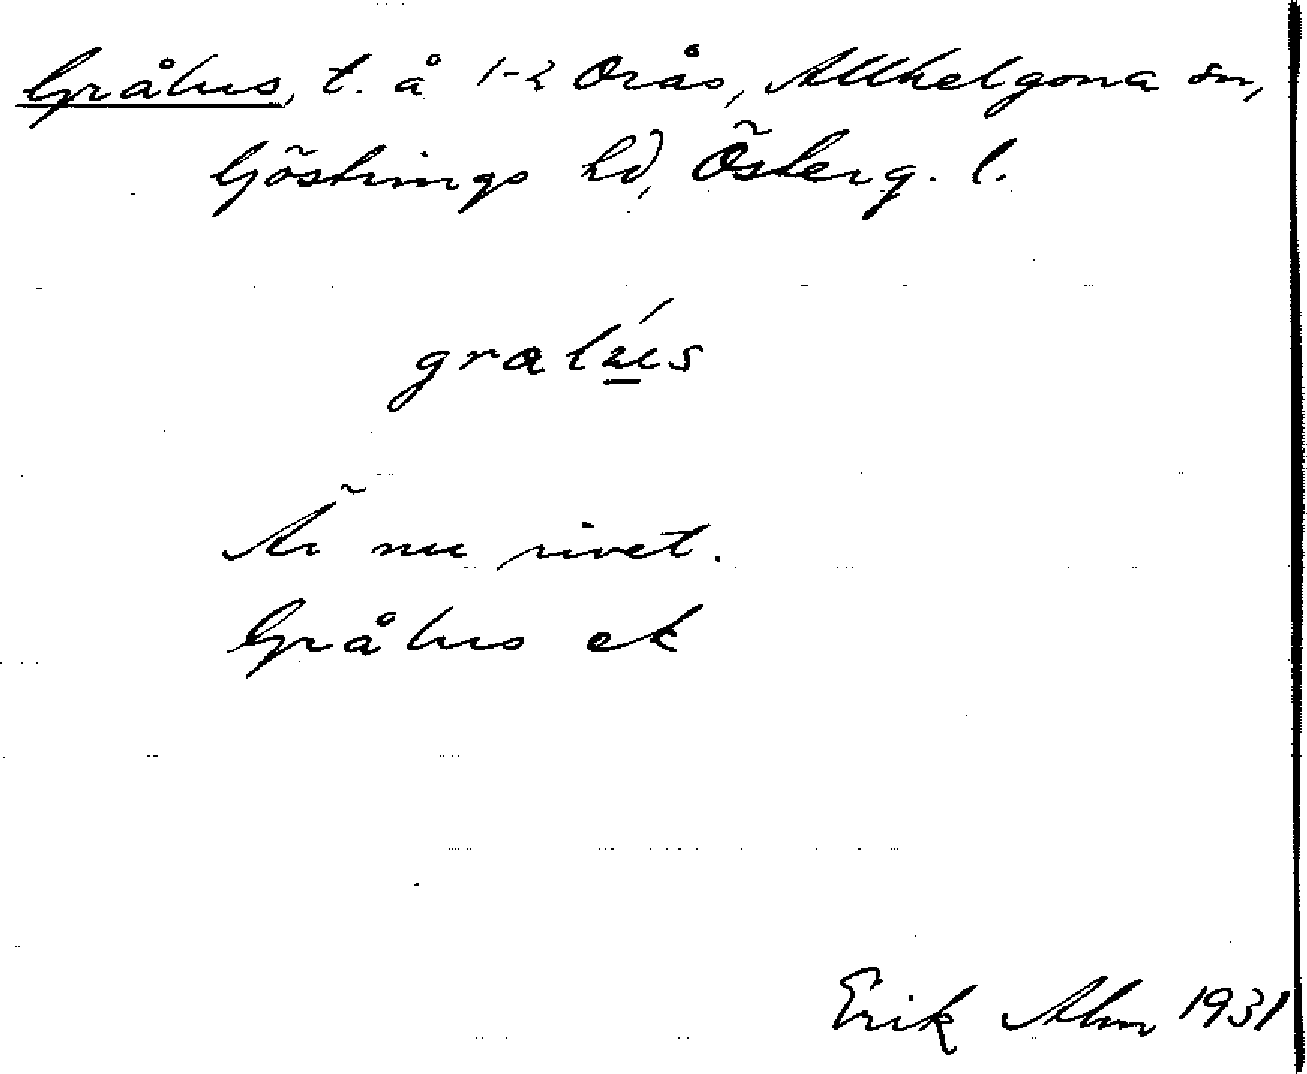 Gråhus, t. å 1-2 Orås, Allhelgona sn,
Göstrings hd, Österg. l.
gralús
Är nu rivet.
Gråhus ek
Erik Alm 1931